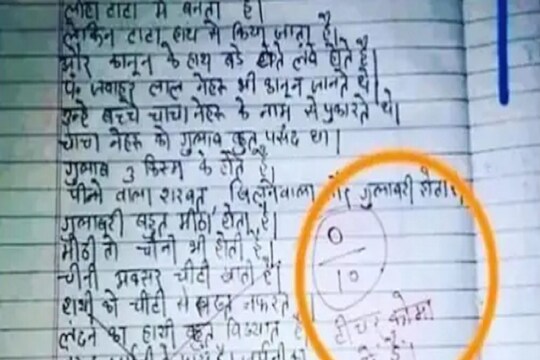 लोहा टाटा में बनता है।
लेकिन टाटा हाथ से किया जाता है।
और कानून के हाथ बडे होते लंबे होते है।
पं. जवाहर लाल नेहरू भी कानून जानते थे।
उन्हे बच्चे चाचा नेहरू के नाम से पुकारते थे।
चाचा नेहरू को गुलाब बहुत पसंद था।
गुलाब 3 किस्म के होते है।
पीने वाला शरबत खिलनेवाला और गुलाबरी होता
गुलाबरी बहुत मीठा होता है।
मीठी तो चीनी भी होती है।
चीनी अक्सर चीटी खाती है।
हाथी को चीटी से बहुत नफरत
लंदन का हाथी बहुत विख्यात है
0
10
टीचर कोमा
में है